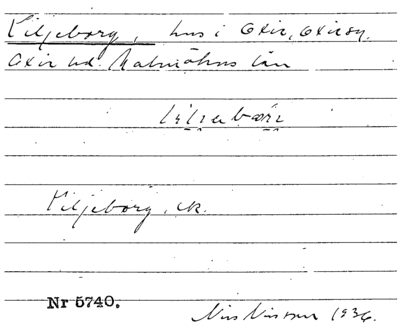 Liljeborg, hus i Oxie, Oxie sn.
Oxie hd. Malmöhus län
Liljeborg, ek.
Nr 5740.
Nils Nilsson 1936.